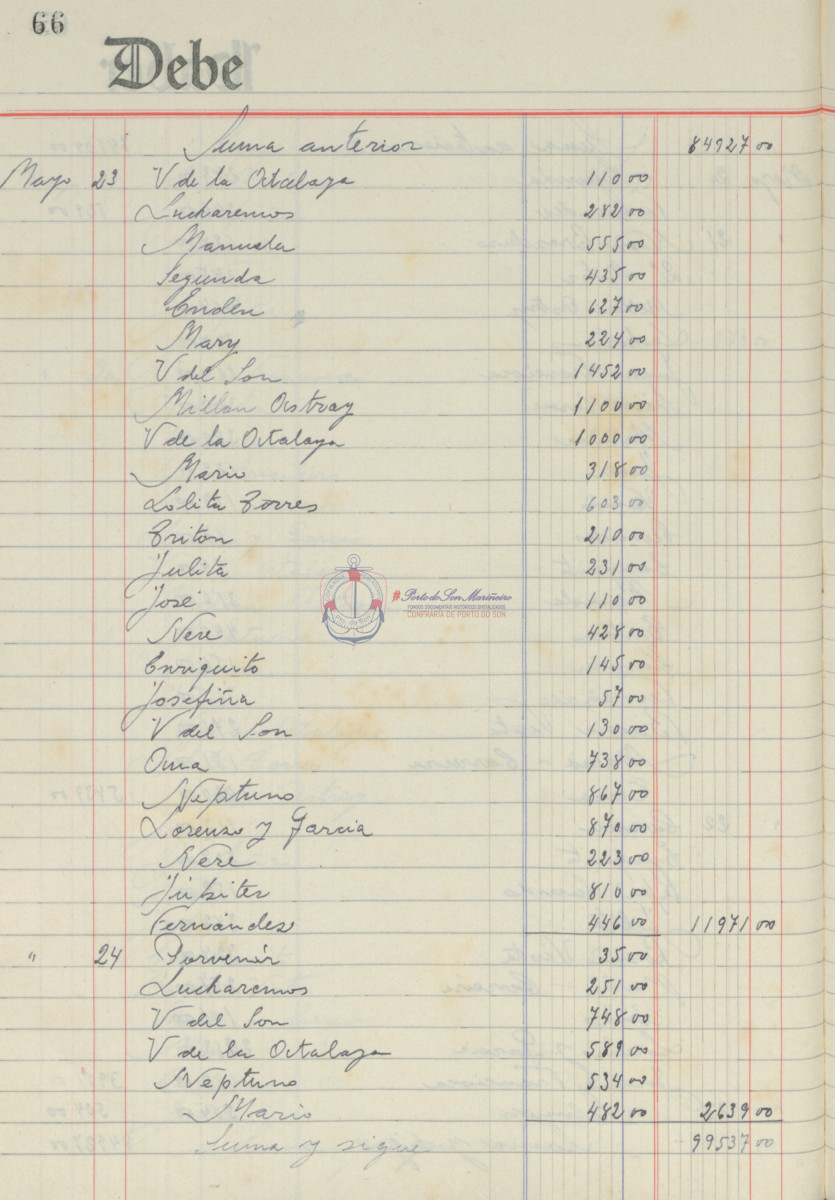 66
Debe
Suma anterior 84927 00
Mayo 23 V de la Atalaya 110 00
Lucharemos 282 00
Manuela 555 00
Segunda 435 00
Enden 627 00
Mary 224 00
V del Son 1452 00
Millan Astray 1100 00
V de la Atalaya 1000 00
Mario 318 00
Lolita Torres 603 00
Triton 210 00
Julita 231 00
José 110 00
Nere 428 00
Enriquito 145 00
Josefiña 57 00
V del Son 130 00
Oma 738 00
Neptuno 867 00
Lorenzo y Garcia 870 00
Nere 223 00
Júpiter 810 00
Fernández 446 00 11971 00
" 24 Porvenir 35 00
Lucharemos 251 00
V del Son 748 00
V de la Atalaya 589 00
Neptuno 534 00
Mario 482 00 2639 00
Suma y sigue 99537 00
#Porto do Son Mariñeiro
FONDOS DOCUMENTAIS HISTÓRICOS DIXITALIZADOS
CONFRARÍA DE PORTO DO SON